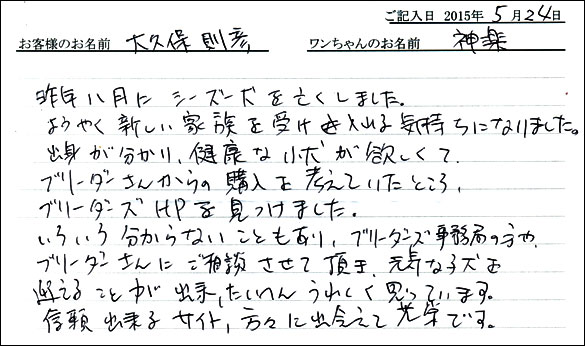 ご記入日 2015年 5月24日
お客様のお名前 大久保 則彦 ワンちゃんのお名前 神楽
昨年八月に シーズー犬を亡くしました。
ようやく新しい家族を受け入れる気持ちになりました。
出身が分かり、健康な小犬が欲しくて、
ブリーダーさんからの購入を考えていたところ、
ブリーダーズHPを見つけました。
いろいろ分からないこともあり、ブリーダーズ事務局の方や、
ブリーダーさんにご相談させて頂き、元気な子犬を
迎えることが出来、たいへんうれしく思っています。
信頼出来るサイト、方々に出会えて光栄です。